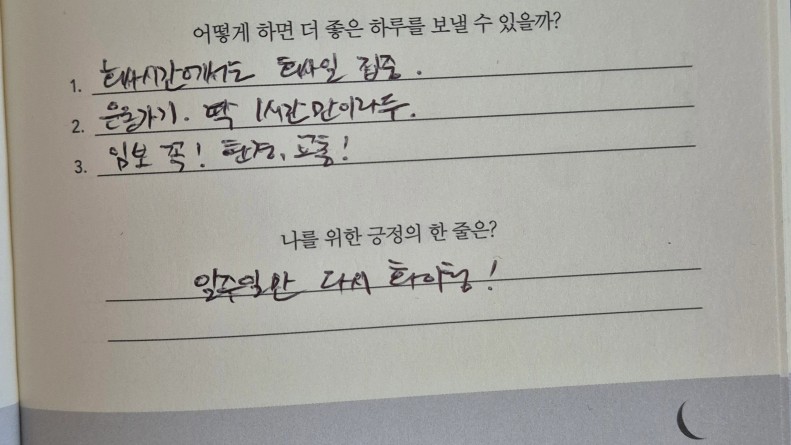 어떻게 하면 더 좋은 하루를 보낼 수 있을까?
1. 회사시간에서도 회사일 집중.
2. 운동가기. 딱 1시간만이라두.
3. 임보 꼭! 환경, 교통!
나를 위한 긍정의 한 줄은?
일주일만 다시 화이팅!